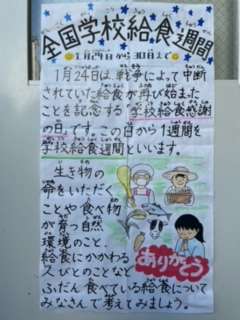 全国学校給食週間
1月24日から30日まで
1月24日は、戦争によって中断
されていた給食が再び始また
ことを記念する「学校給食感謝
の日」です。この日から1週間を
学校給食週間といいます。
生き物の
命をいただく
ことや食べ物
が育つ自然
環境のこと、
給食にかかわる
人びとのことなど
ふだん食べている給食について
みなさんで考えてみましょう。
ありがとう